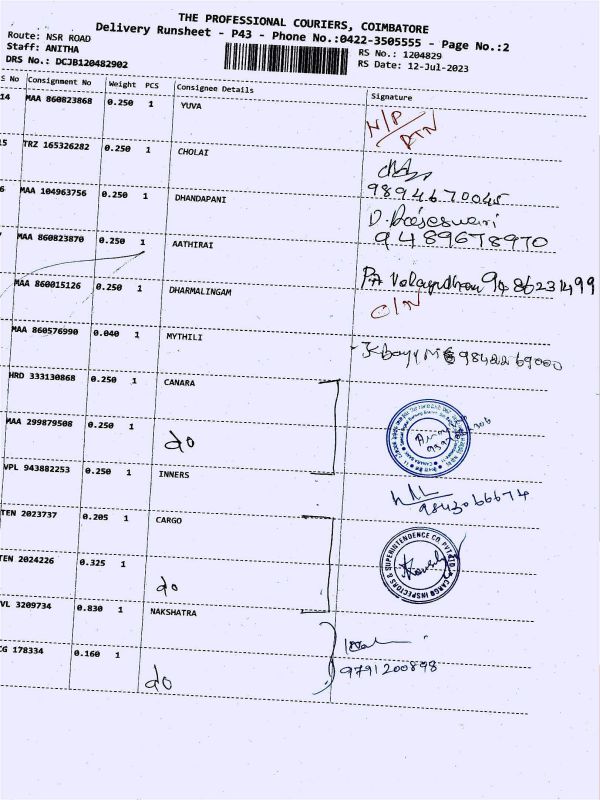 THE PROFESSIONAL COURIERS, COIMBATORE
Delivery Runsheet - P43 - Phone No.:0422-3505555 - Page No.:2
Route: NSR ROAD
RS No.: 1204829
Staff: ANITHA
RS Date: 12-Jul-2023
DRS No.: DCJB120482902
S No Consignment No Weight PCS Consignee Details Signature
14 MAA 860823868 0.250 1 YUVA N/P RTN
5 TRZ 165326282 0.250 1 CHOLAI
9894670045
6 MAA 104963756 0.250 1 DHANDAPANI D.
9489678970
MAA 860823870 0.250 1 AATHIRAI 9486231499
MAA 860015126 0.250 1 DHARMALINGAM C/N
MAA 860576990 0.040 1 MYTHILI 9842269000
HRD 333130868 0.250 1 CANARA
MAA 299879508 0.250 1 do
VPL 943882253 0.250 1 INNERS
9843066674
TEN 2023737 0.205 1 CARGO
CARGO INSPECTORS & SUPERINTENDENCE CO. PVT. LTD.
TEN 2024226 0.325 1 do
VL 3209734 0.830 1 NAKSHATRA
CG 178334 0.160 1 do 9791200898